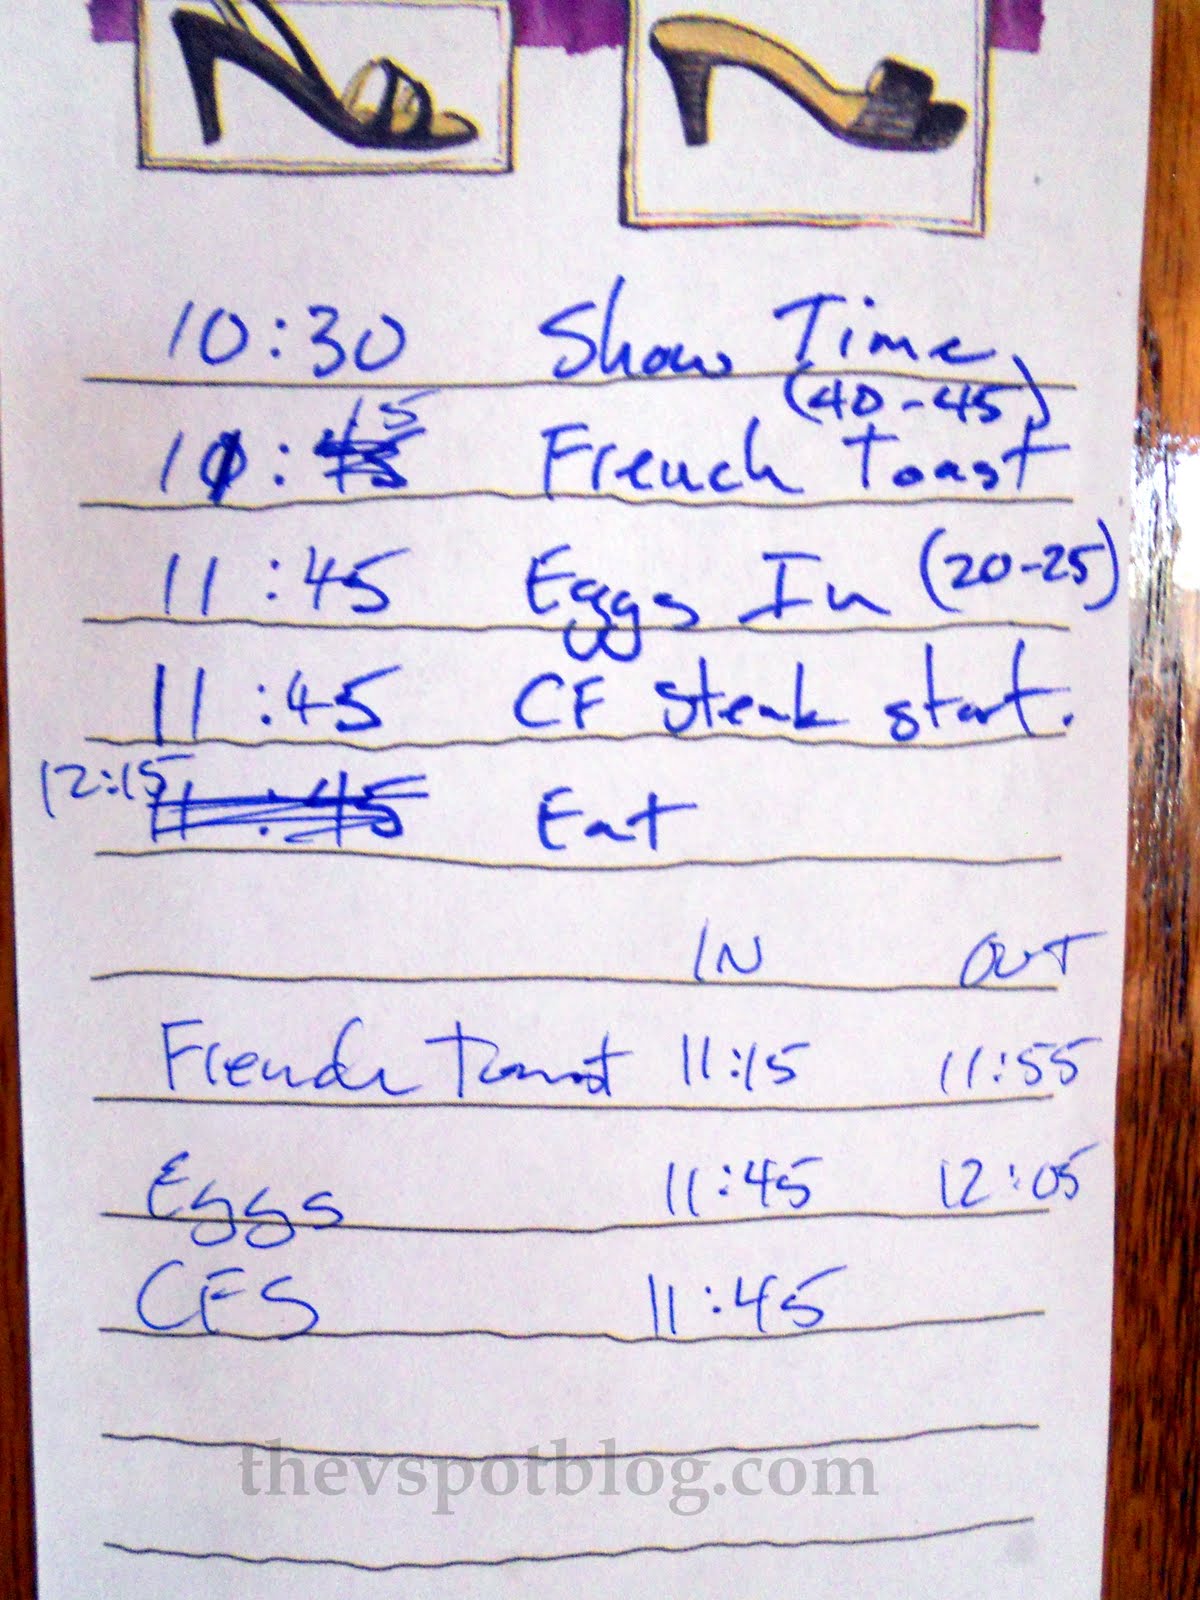 10:30 Show Time
(40-45)
11:15 French Toast
11:45 Eggs In (20-25)
11:45 CF Steak start.
12:15 11:45 Eat
IN OUT
French Toast 11:15 11:55
Eggs 11:45 12:05
CFS 11:45
thevspotblog.com